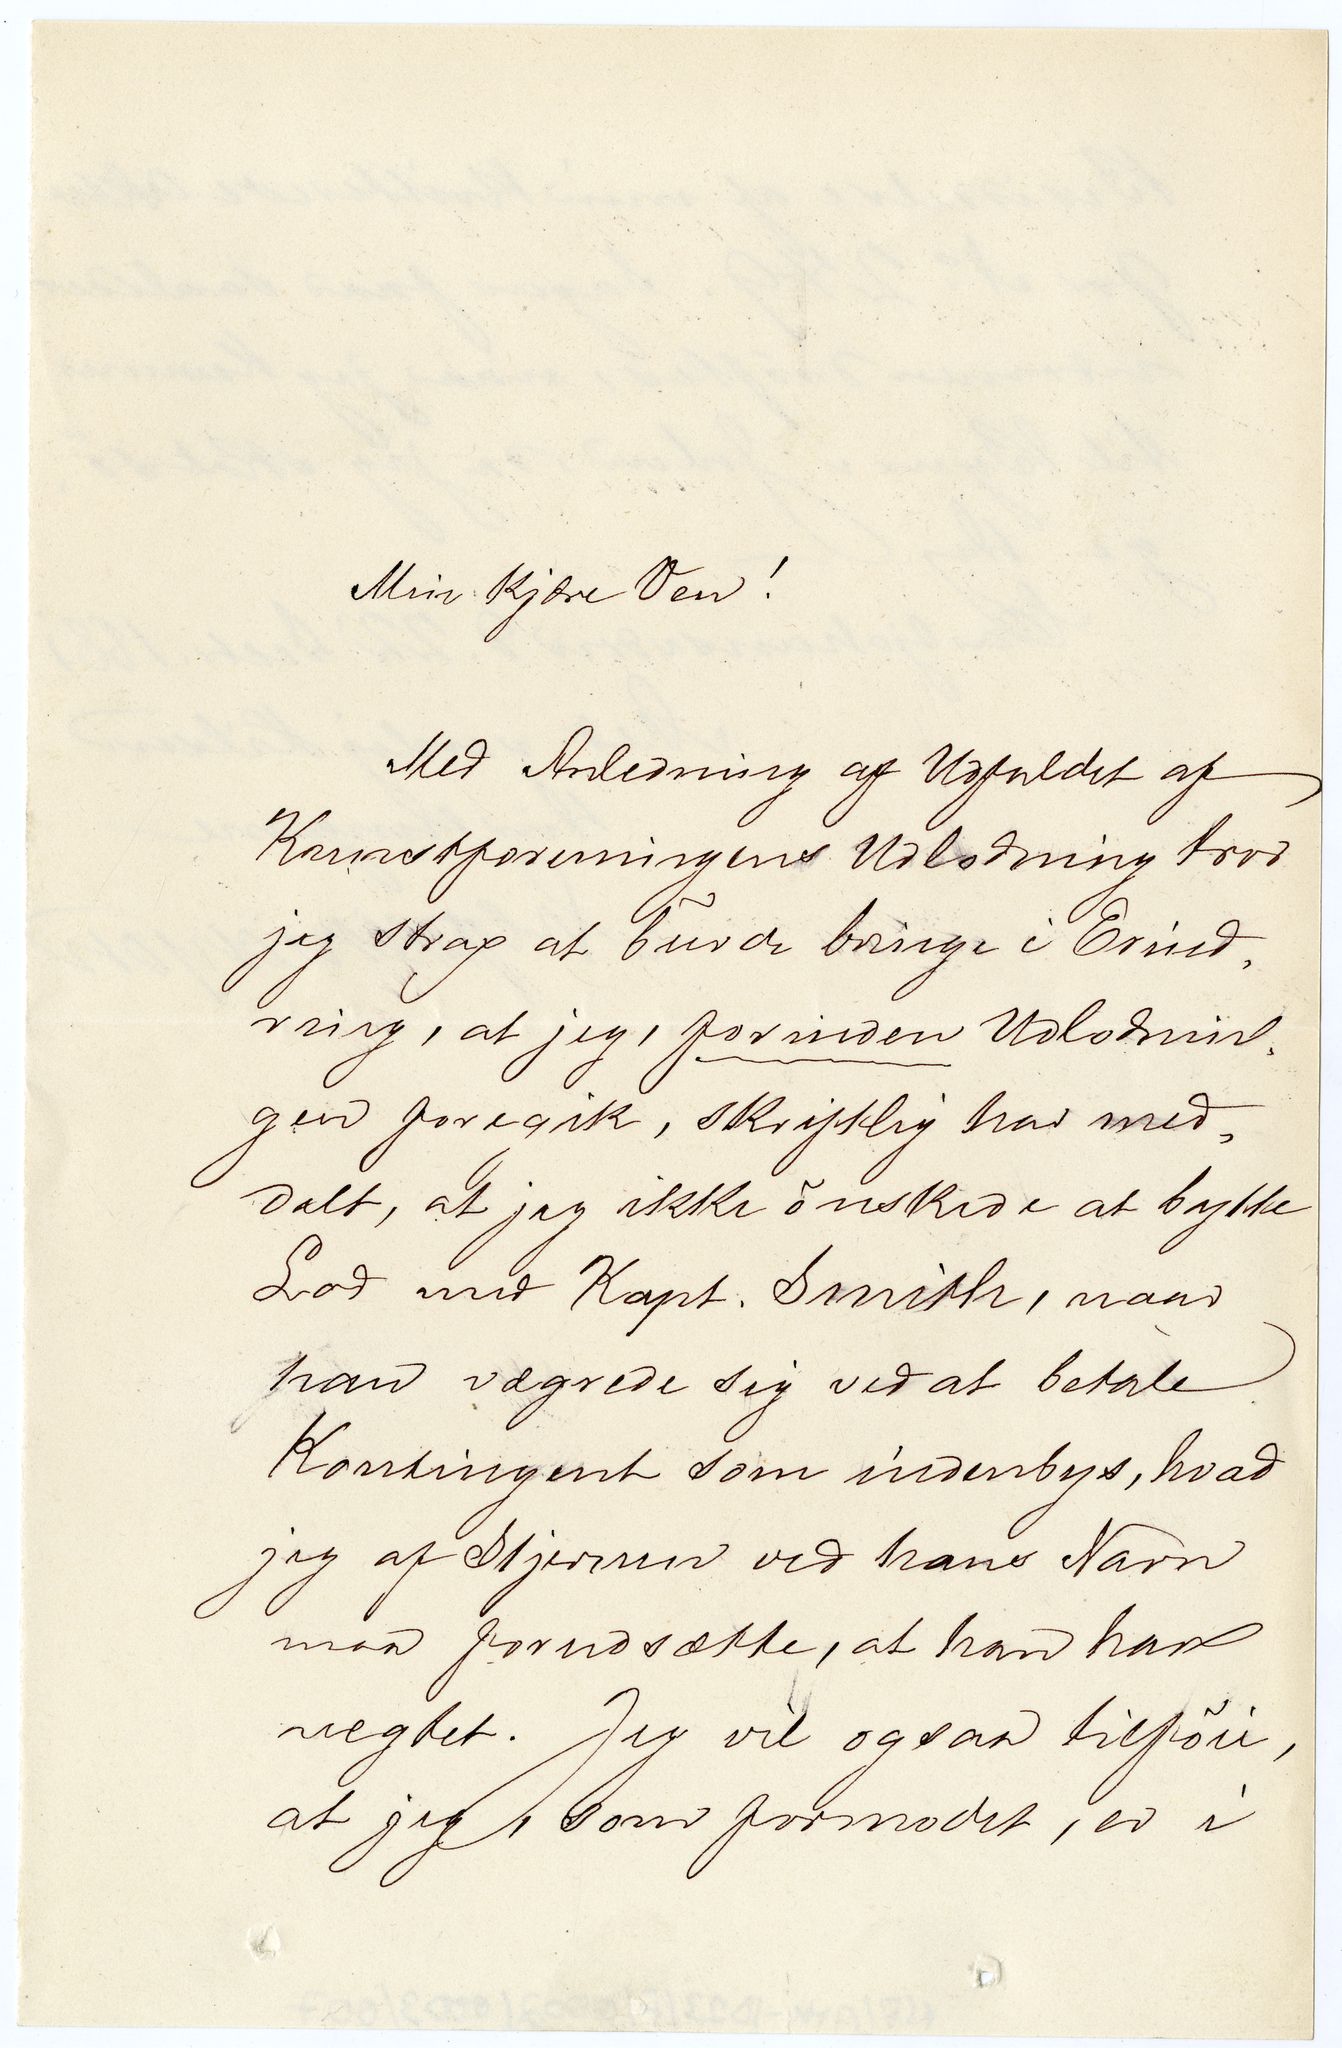 Min kjære Ven!
Med Anledning af Udfaldet af
Kunstforeningens Udlodning tror
jeg strax at burde bringe i Erind,
ring, at jeg, forinden Udlodnin,
gen foregik, skriftlig har med,
delt, at jeg ikke önskede at bytte
Lod med Kapt. Smith, naar
han vægrede sig ved at betale
Kontingent som indenbys, hvad
jeg af Stjernen ved hans Navn
maa forudsætte, at han har
vegtet. Jeg vil ogsaa tilföie,
at jeg, som formodet, er i